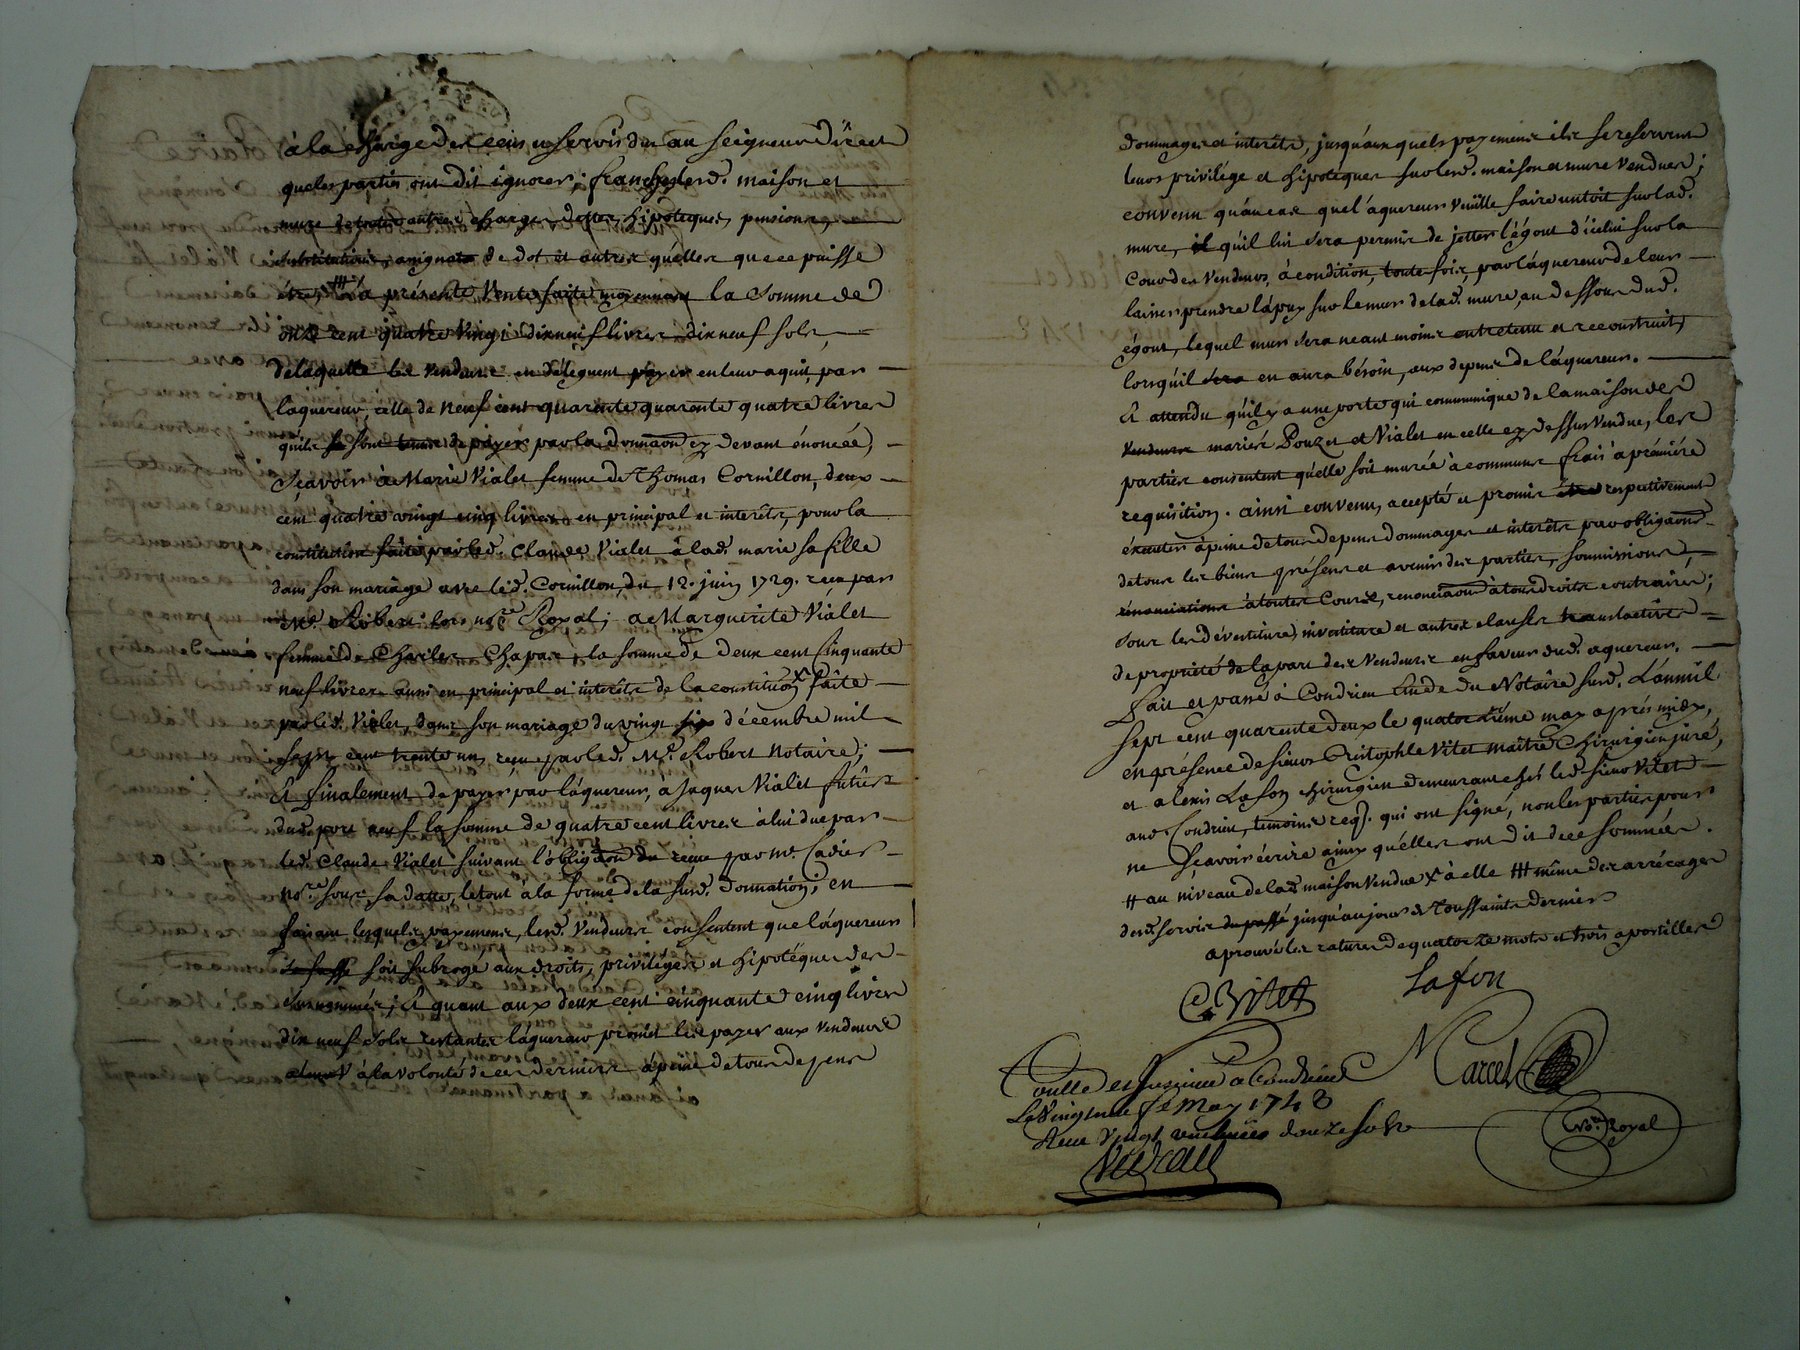 à la charge des cens et servis dus au seigneur direct
que les partis ont dit ignorer; franches lesd. maison et
mure de toutes autres charges dettes, hipoteques, pensions,
substitutions, de dot et autres qu'elles que ce puisse
être, la présente vente faitte moyennant la somme de
onze cent quatre vingt dixneuf livres dixneuf sols,
de laquelle les vendeurs en déleguent payer en leur aquit, par
laquereur, celle de neuf cent quarente quatre livres
quils se sont de payer par la donnaon cy devant énoncéé,
Sçavoir à Marie Vialet femme de Thomas Cornillon, deux
cent quatre vingt cinq livres en principal et interêts, pour la
constitution faite par led. Claude Vialet à lad. marie sa fille
dans son mariage avec led. Cornillon, du 12. juin 1729. recu par
Me. Robert lors nore Royal; a Marguerite Vialet
femme de Charles Chapas, la somme de deux cent cinquante
neuf livres aussi en principal et interêts de la constituon x faite
par led. Vialet, dans son mariage du vingt six décembre mil
sept cent trente un, recu par led. Me. Robert Notaire;
Et finalement de payer par láquereur, à Jaques Vialet
la somme de quatre cent livres à lui due par
led. Claude Vialet suivant l'obligaon du recue par me. Cadier
nore. sous sa datte, le tout à la forme de la susd. Donnation; en
faisant lesquels payements, lesd. Vendeurs consentent que láquereur
soit subrogé aux droits, priviléges et hipotéques des
surnommés; Et quant aux deux cent cinquante cinq livres
dix neuf sols restantes láquereur promet les payer aux vendeurs
à la volonté de ces derniers à peine de tous depens
dommages et interêts, jusqu'aux quels payements ils se reservent
leurs privilége et hipoteques sur lesd. maison et mure vendues;
convenu qu'au cas que l'aquereur veüille faire un toit sur lad.
mure, il qu'il lui sera permis de jetter l'égout d'icelui sur la
Cour des vendeurs, à condition, toute fois, par láquereur de leur
laisser prendre lápuy sur le mur de lad. mure, au dessous dud.
égout, lequel mur sera neant moins entretenu et reconstruit,
lorsqu'il sera en aura bésoin, aux depens de láquereur.
Et attendu qu'il y a une porte qui communique de la maison des
vendeurs mariés Pouzet et Vialet en celle cy dessus vendue, les
parties consentent qu'elle soit murée à communs frais à prémiére
requisition. ainsi convenu, accepté et promis respectivement
éxecuter à peine de tous depens dommages et interêts par obligaon
de tous les biens présens et avenir des parties, soumissions,
rénonciations à toutes Cours, renonciaon à tous droits contraires;
sous les dévestiture, investiture et autres clauses translatives
de propriété de la part des Vendeurs en faveur dud. aquereur.
Fait et passé à Condrieu Etude du Notaire susd. L'an mil
sept cent quarente deux le quatorzième may aprés midy,
en présence de sieurs Cristophle Vitet maître Chirurgien juré,
et alexis Lafon chirurgien demeurant chés led. sieur Vitet
aud. Condrieu, témoins req. qui ont signé, non les parties pour
ne sçavoir écrire ainsy qu'elles ont dit de ce sommées.
au niveau de lad. maison vendue x à elle même des arrérages
desd. servis du passé jusqu'au jour de Toussaints dernier
aprouvé les ratures de quatorze mots et trois apostilles
C Vitet
Lafon
Marcel
Nore. Royal
Controllé et Insinué a Condrieu
Le vingt may 174
Receu vingt douze sols